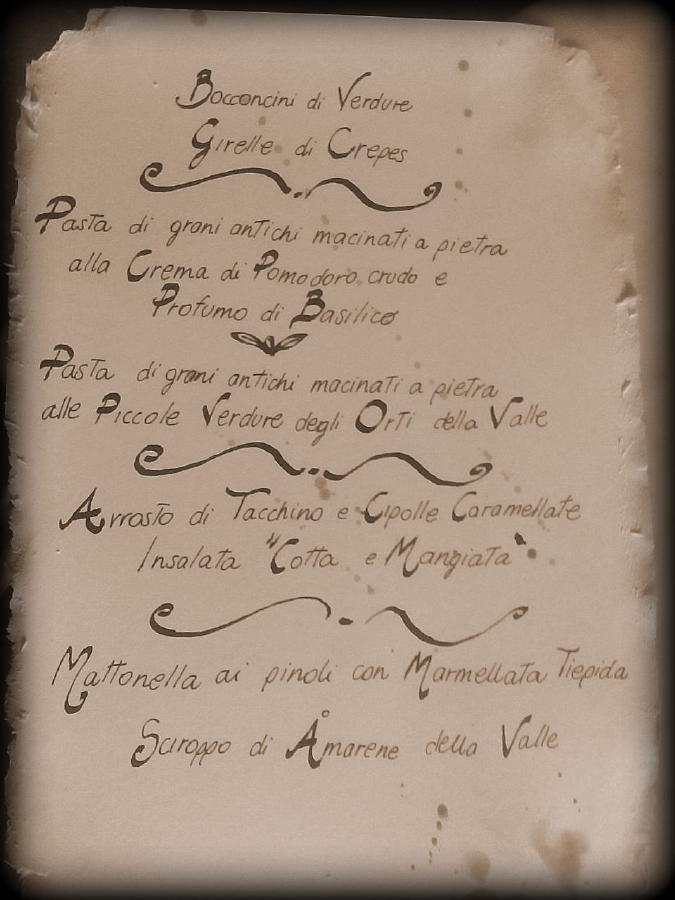 Bocconcini di Verdure
Girelle di Crepes
Pasta di grani antichi macinati a pietra
alla Crema di Pomodoro crudo e
Profumo di Basilico
Pasta di grani antichi macinati a pietra
alle Piccole Verdure degli Orti della Valle
Arrosto di Tacchino e Cipolle Caramellate
Insalata "Cotta e Mangiata"
Mattonella ai pinoli con Marmellata Tiepida
Sciroppo di Amarene della Valle